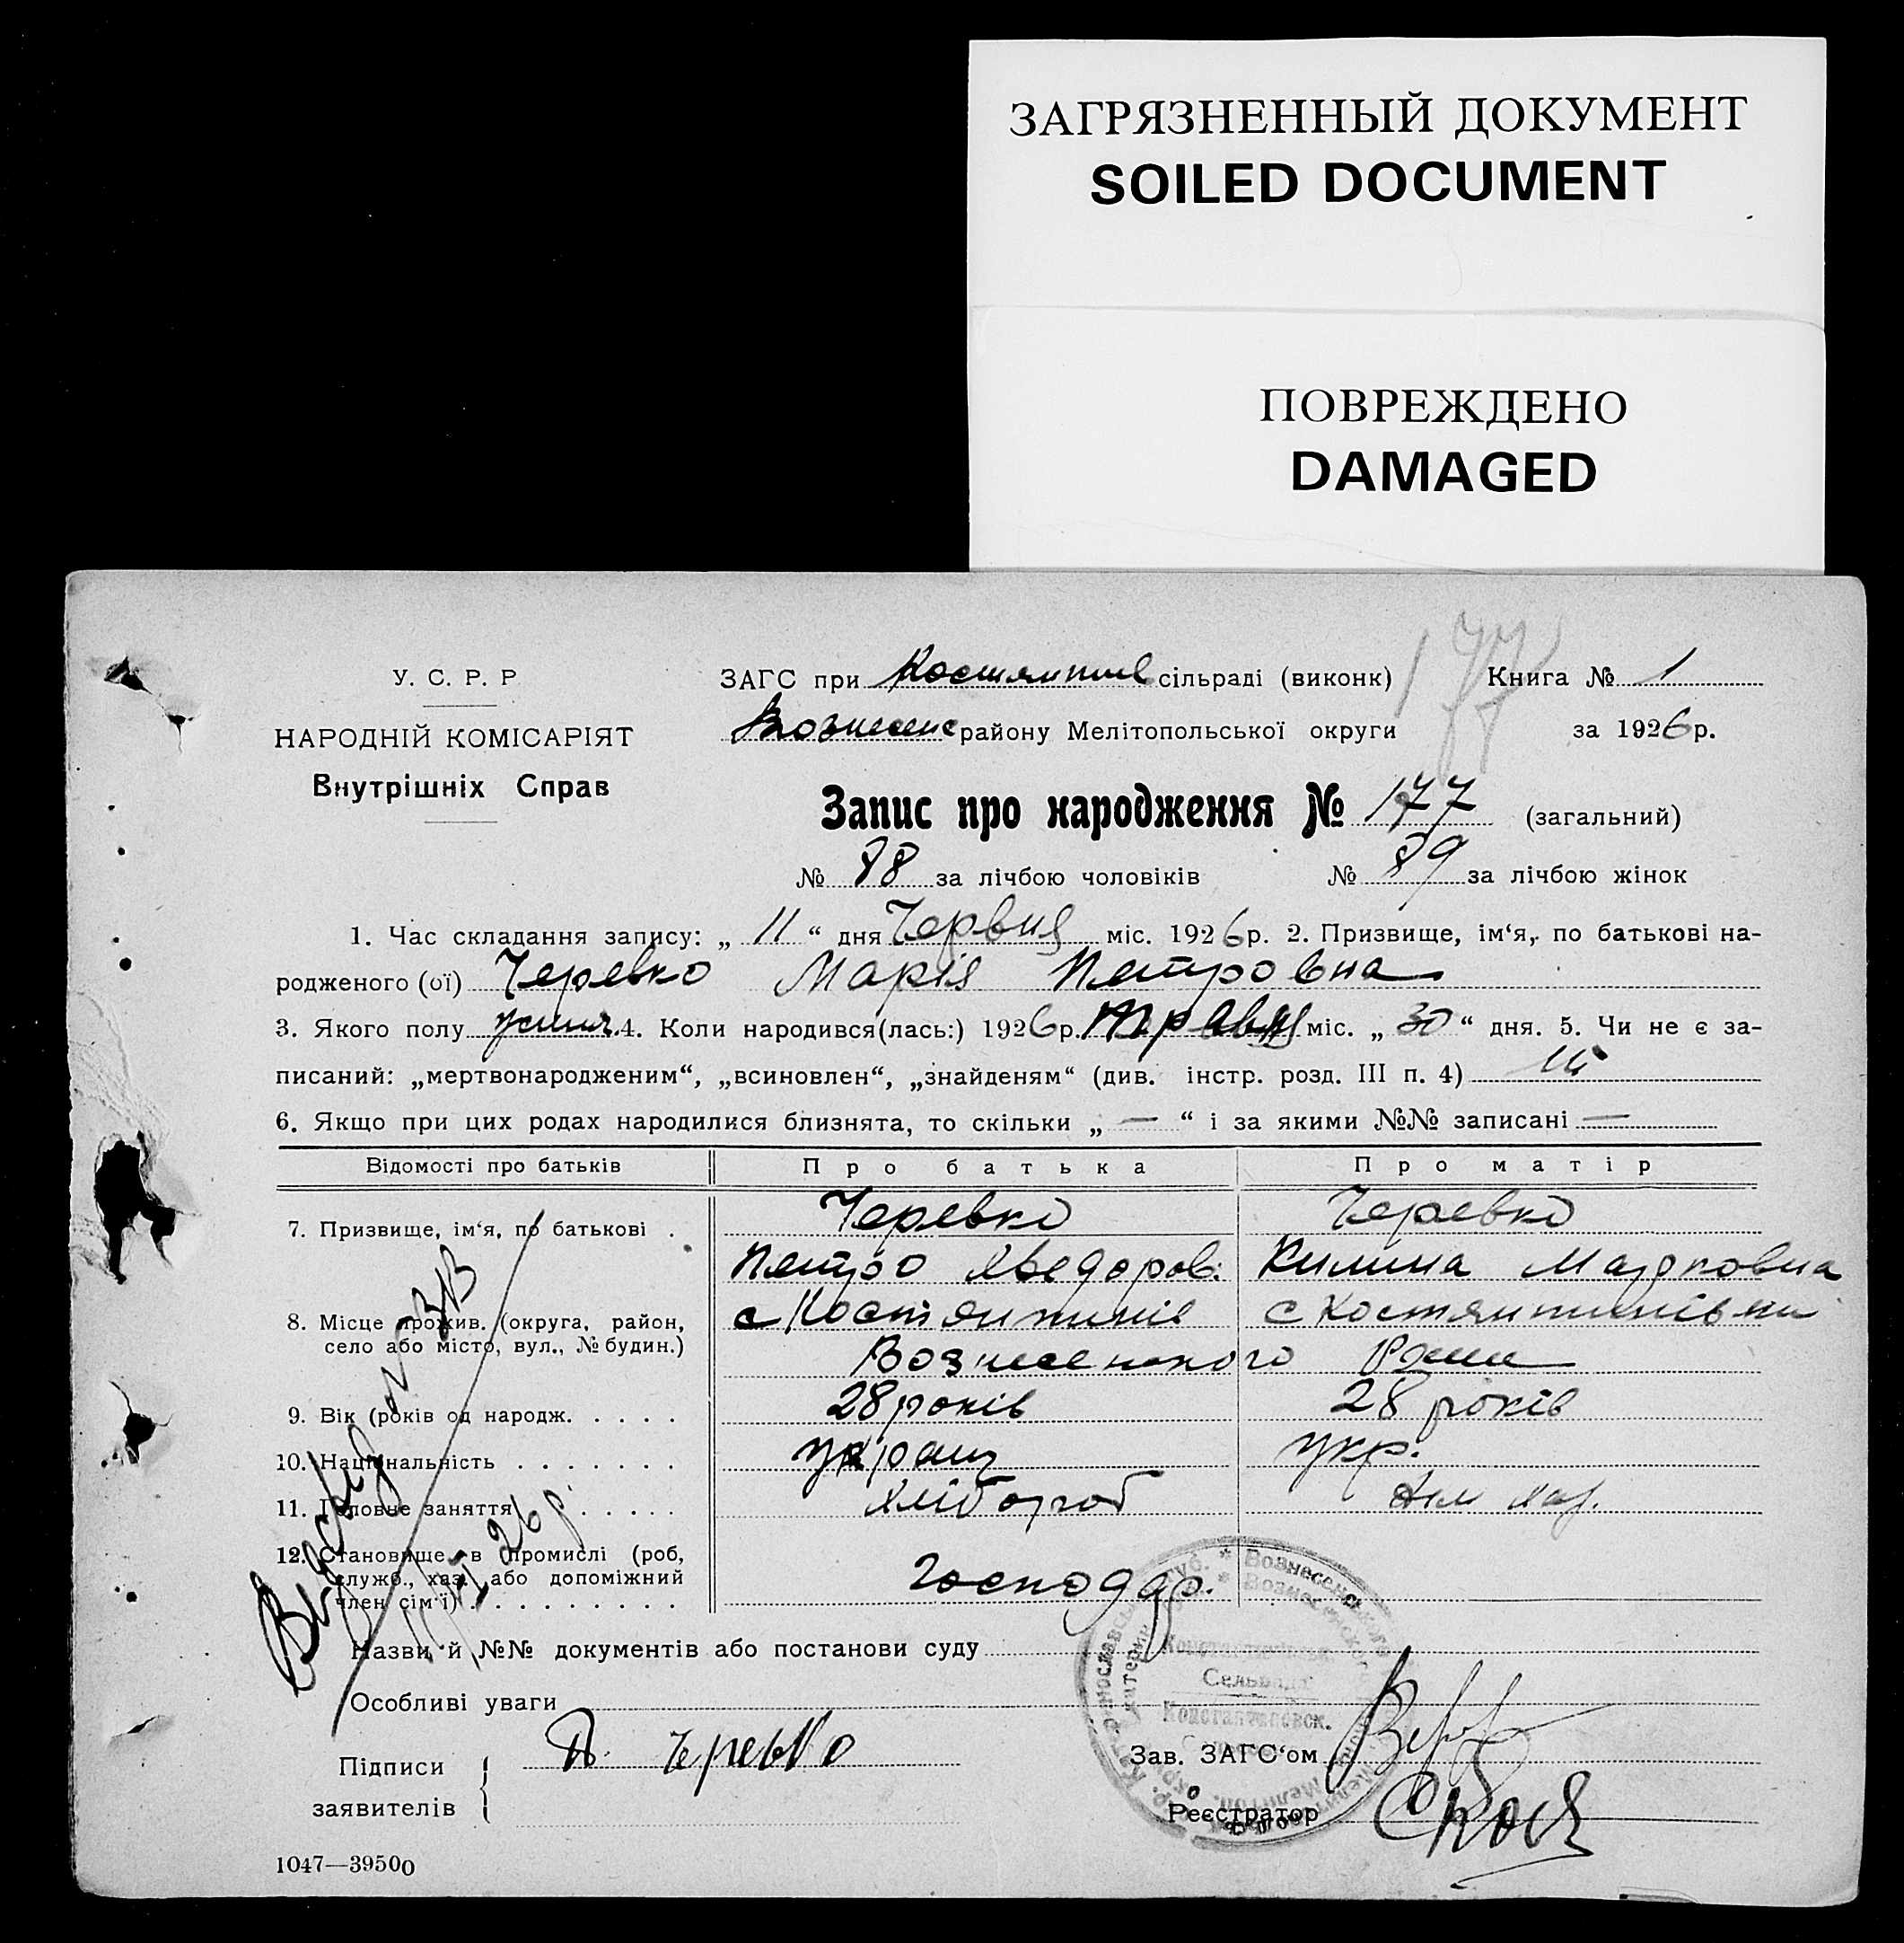 ЗАГРЯЗНЕННЫЙ ДОКУМЕНТ
SOILED DOCUMENT
ПОВРЕЖДЕНО
DAMAGED
177
У. С. Р. Р
НАРОДНІЙ КОМІСАРІЯТ
Внутрішніх Справ
ЗАГС при Костянтинів сільраді (виконк) Книга № 1
Вознесенс району Мелітопольської округи за 1926 р.
Запис про народження № 177 (загальний)
№ 88 за лічбою чоловіків № 89 за лічбою жінок
1. Час складання запису: „ 11 “ дня Червня міс. 1926 р. 2. Призвище, ім‘я, по батькові на-
родженого (ої) Черевко Марія Петровна
3. Якого полу жіноч. 4. Коли народився(лась:) 1926 р. Травня міс. „ 30 “ дня. 5. Чи не є за-
писаний: „мертвонародженим“, „всиновлен“, „знайденям“ (див. інстр. розд. III п. 4) ні
6. Якщо при цих родах народилися близнята, то скільки „ — “ і за якими №№ записані —
Відомості про батьків Про батька Про матір
7. Призвище, ім‘я, по батькові . Черевко Черевко
Петро Хведоров. Килина Марковна
8. Місце прожив. (округа, район, с Костянтинів с Костянтинівки
село або місто, вул., № будин.) Вознесенского
9. Вік (років од народж. . . . . 28 років 28 років
10. Національність . . . . . . . україн укр.
11. Головне заняття . . . . . хлібороб
12. Становище в промислі (роб, господар.
служб., хаз. або допоміжний
член сім‘ї) . . . . . . . . .
Назви й №№ документів або постанови суду
Особливі уваги
Підписи П. Черевко
заявителів
Зав. ЗАГС‘ом
Реєстратор
Сельрада
26 р.
1047—39500